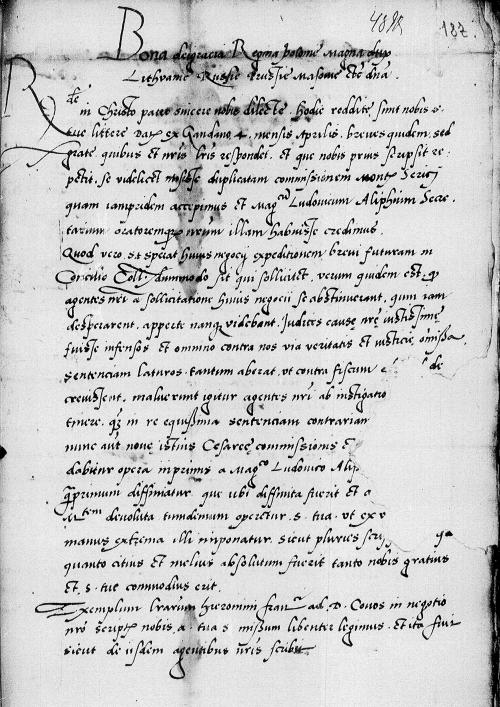 187
Bona dei gracia Regina polonie Magna dux
Lithvanie Russie Prussie Masovie etc dna.
Rde
in Christo pater sincere nobis dilecte. Hodie reddite sunt nobis s.
tue littere Dat. ex Gandano 4. mensis Aprilis. breves quidem, sed
grate, quibus et nris lris respondet, et que nobis prius scripsit re-
petit, se videlicet misisse duplicatam commissionem Mont
quam iampridem accepimus et Mag. Ludovicum Aliphium Secre-
tarium oratoremq nrum illam habuisse credimus.
Quod vero s.t. sperat huius negocij expeditionem brevi futuram in
Concilio Coll. dummodo sit qui sollicitet, verum quidem est,
agentes nri a sollicitatione huius negocij se abstinuerant, quum iam
desperarent, apperte nanq videbant Judices cause nre iustissime
fuisse infensos et omnino contra nos via veritatis et iusticie omissa,
sentenciam laturos. tantum aberat, ut contra fiscum de
crevissent, maluerunt igitur agentes nri ab instigatio
tenere, in re equissima sentenciam contrariam
nunc aut nove istius Cesaree commissionis et
dabitur opera inprimis a Mag. Ludovico Alip
primum diffiniatur. que ubi diffinita fuerit et a
Mtem devoluta tumdemum operetur s. tua. ut ex v
manus extrema illi imponatur, sicut pluries scri
quanto citius et melius absolutum fuerit tanto nobis gratius
et s. tue commodius erit.
Exemplum lrarum Hieronimi Fran. ad D. Covos in negotio
nro script. nobis a tua s. missum libenter legimus. et ita fuit
sicut de iisdem agentibus nris scribit